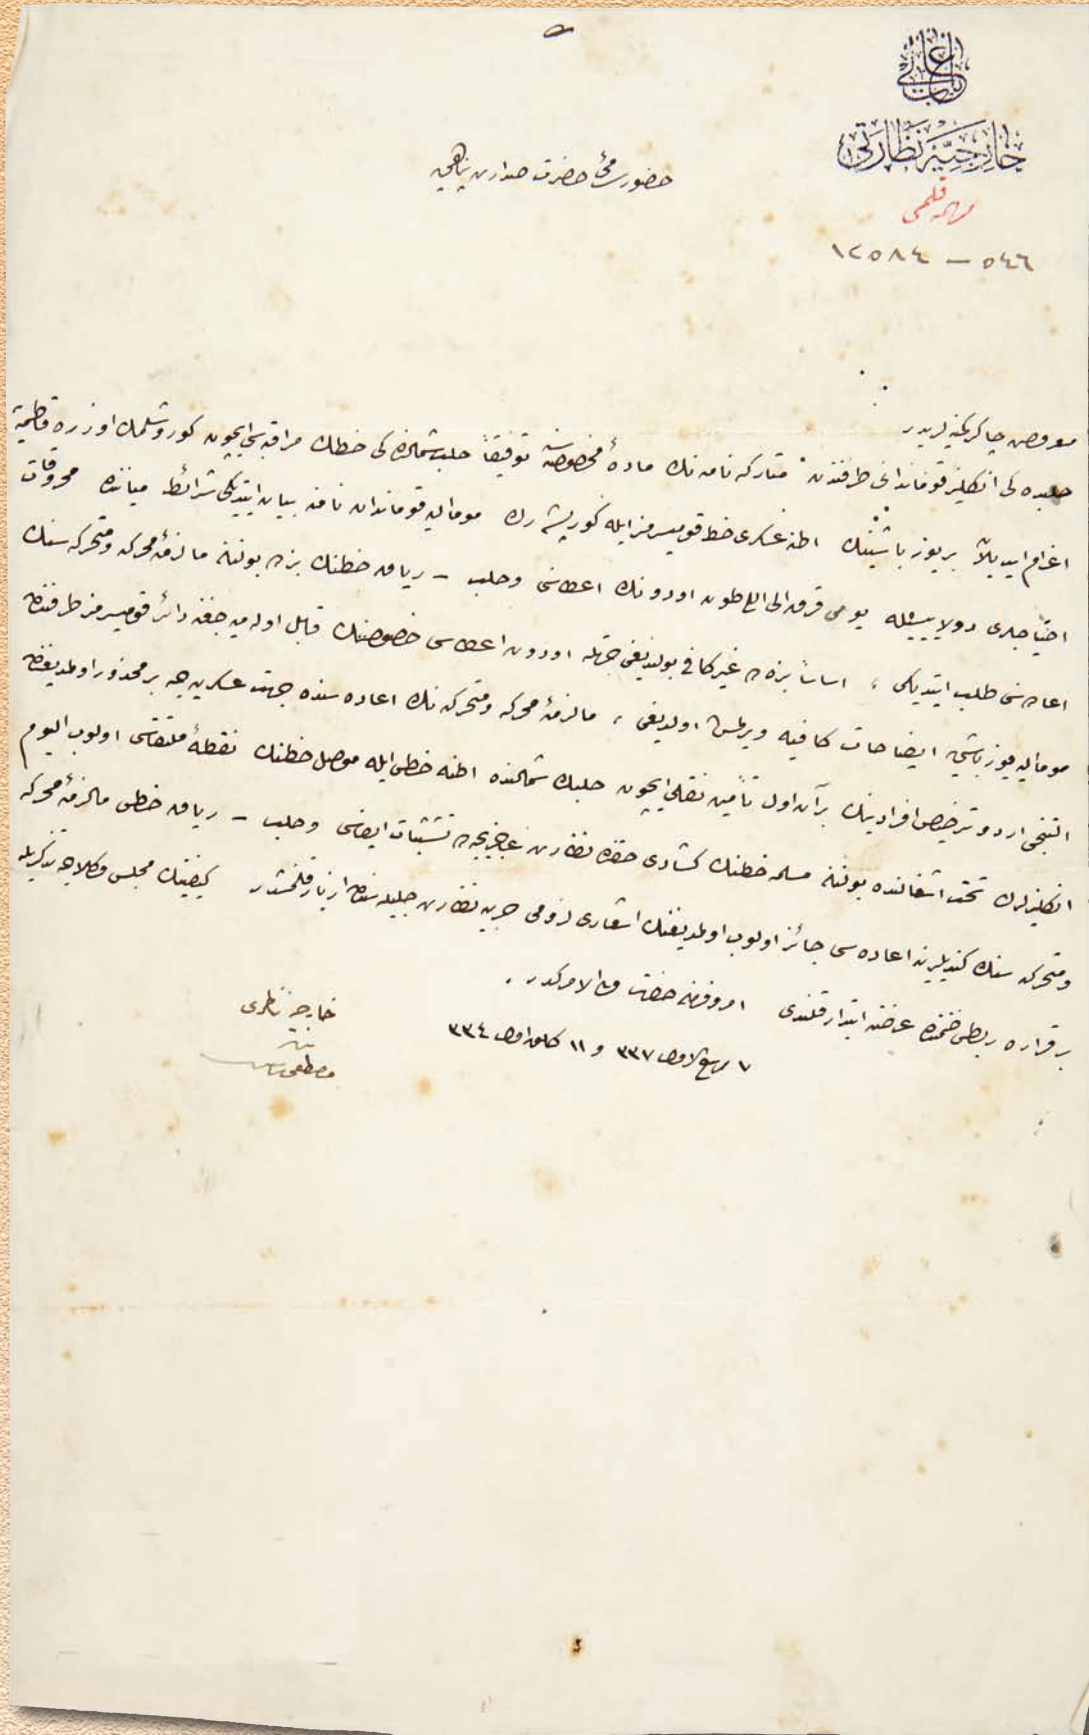 باب عالی
خارجیه نظارتی
مهمه قلمی
٥٤٦ – ١٢٥٨٤
حضور سامئ حضرت صدارتپناهی
معروض چاکر کمینه لریدر
حلبده کی انکلیز قوماندانی طرفندن متارکه نامه نك مادهٔ مخصوصه سنه توفیقاً حلب شمالنده کی خطك مراقبه سی ایچون کوروشلمك اوزره قاطمه یه
اعزام ایدیلن بر یوزباشینك اطنه عسکری خط قومیسرمز ایله کوریشه رك مومالیه قوماندان نامنه بیان ایتدیکی شرائط میاننده محروقات
احتیاجلری دولاییسیله یومی قرق الی طون اودونك اعطاسنی وحلب – ریاق خطنك بزده بولنان مالزمهٔ محرکه ومتحرکه سنك
اعاده سنی طلب ایتدیکی ، اساساً بزده غیر کافی بولندیغی جهتله اودون اعطاسی خصوصنك قابل اوله میه جغنه دائر قومیسرمز طرفندن
مومالیه یوزباشی یه ایضاحات کافیه ویرلمش اولدیغی ، مالزمهٔ محرکه ومتحرکه نك اعاده سنده جهت عسکریه جه بر محذور اولمدیغندن
التنجی اردو ترخیص افرادینك بر آن اول تأمین نقلی ایچون حلبك شمالنده اطنه خطی ایله موصل خطنك نقطهٔ ملتقاسی اولوب الیوم
انکلیزلرك تحت اشغالنده بولنان مسلمیه خطنك کشادی حقنده نظارت عاجزیجه ده تشبثات ایفاسی وحلب – ریاق خطی مالزمهٔ محرکه
ومتحرکه سنك کندیلرینه اعاده سی جائز اولوب اولمدیغنك اشعاری لزومی حربیه نظارت جلیله سندن ازبار قلنمشدر کیفیتك مجلس وکلاجه تذکریله
بر قراره ربطی ضمننده عرضنه ابتدار قلندی امر وفرمان حضرت من له الامرکدر .
٧ ربیع الاول ٣٣٧ و ١١ کانون اول ٣٣٤
خارجیه ناظری
بنده
مصطفی رشید